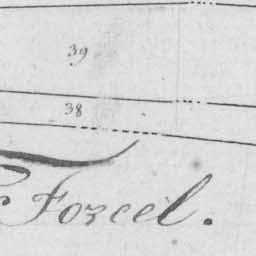 39
38
Forcel.